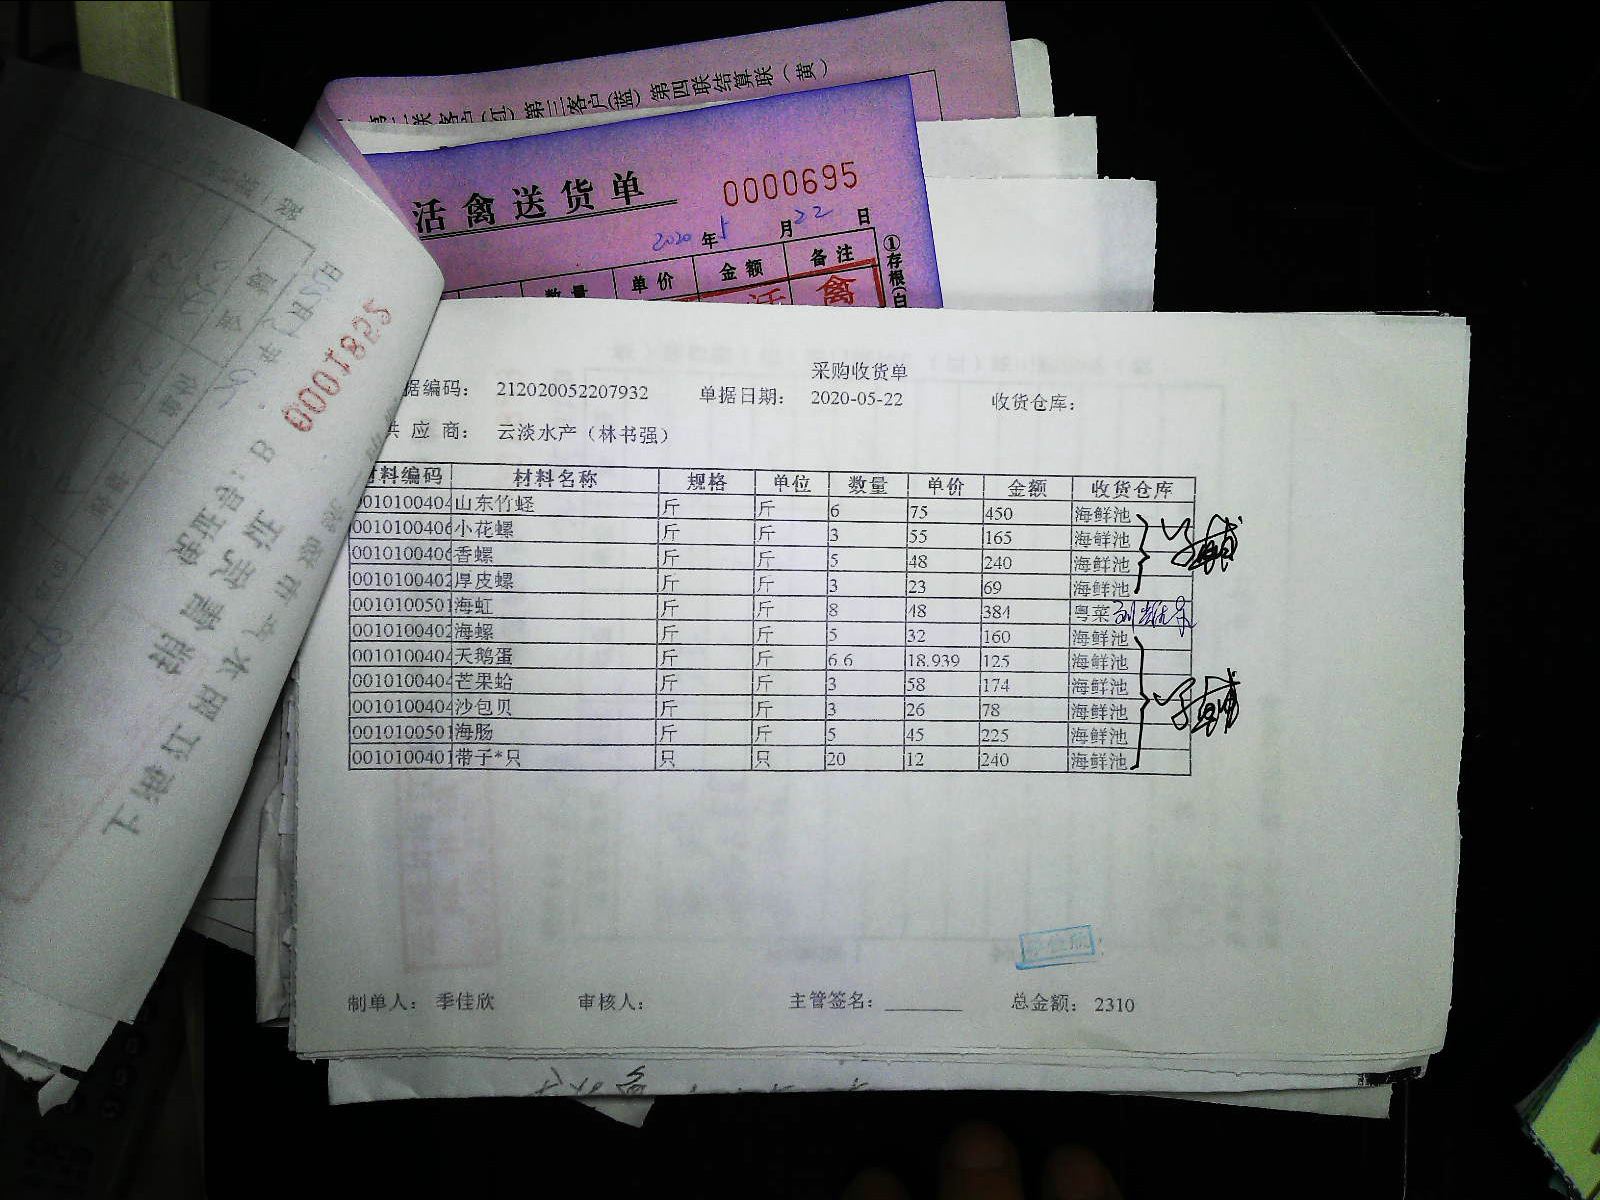 第三客户(蓝) 第四联结算联(黄)
活禽送货单 0000695
2020年5月22日
数量 单价 金额 备注
①存根(白
活 禽
0001895
采购收货单
据编码: 212020052207932 单据日期: 2020-05-22 收货仓库:
供应商: 云淡水产(林书强)
材料编码 材料名称 规格 单位 数量 单价 金额 收货仓库
0010100404 山东竹蛏 斤 斤 6 75 450 海鲜池
0010100406 小花螺 斤 斤 3 55 165 海鲜池
0010100406 香螺 斤 斤 5 48 240 海鲜池
0010100402 厚皮螺 斤 斤 3 23 69 海鲜池
0010100501 海虹 斤 斤 8 48 384 粤菜
0010100402 海螺 斤 斤 5 32 160 海鲜池
0010100404 天鹅蛋 斤 斤 6.6 18.939 125 海鲜池
0010100404 芒果蛤 斤 斤 3 58 174 海鲜池
0010100404 沙包贝 斤 斤 3 26 78 海鲜池
0010100501 海肠 斤 斤 5 45 225 海鲜池
0010100401 带子*只 只 只 20 12 240 海鲜池
季佳欣
制单人: 季佳欣 审核人: 主管签名: 总金额: 2310